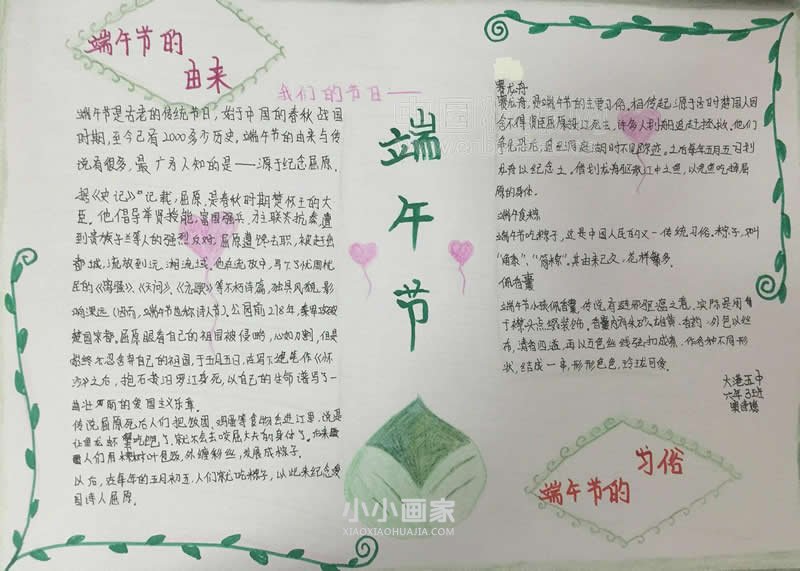 端午节的
由来
我们的节日——
端午节
端午节是古老的传统节日，始于中国的春秋战国
时期，至今已有2000多年历史。端午节的由来与传
说有很多，最广为人知的是——源于纪念屈原。
据《史记》记载，屈原，是春秋时期楚怀王的大
臣。他倡导举贤授能，富国强兵，力主联齐抗秦，遭
到贵族子兰等人的强烈反对，屈原遭馋去职，被赶出
都城，流放到沅、湘流域。他在流放中，写下了忧国忧
民的《离骚》、《天问》、《九歌》等不朽诗篇，独具风貌，影
响深远（因而，端午节也称诗人节）。公元前278年，秦军攻破
楚国京都。屈原眼看自己的祖国被侵略，心如刀割，但是
始终不忍舍弃自己的祖国，于五月五日，在写下绝笔作《怀
沙》之后，抱石投汨罗江身死，以自己的生命谱写了一
曲壮丽的爱国主义乐章。
传说屈原死后人们把饭团、鸡蛋等食物丢进江里，说是
让鱼龙虾蟹吃饱了，就不会去咬屈大夫的身体了。后来
人们用树叶包饭，外缠彩丝，发展成粽子。
以后，在每年的五月初五，人们就吃粽子，以此来纪念爱
国诗人屈原。
赛龙舟
赛龙舟，是端午节的主要习俗。相传起源于古时楚国人因
舍不得贤臣屈原投江死去，许多人划船追赶拯救。他们
争先恐后，追至洞庭湖时不见踪迹。之后每年五月五日划
龙舟以纪念之。借划龙舟驱散江中之鱼，以免鱼吃掉屈
原的身体。
端午食粽
端午节吃粽子，这是中国人民的又一传统习俗。粽子，又叫
“角黍”、“筒粽”。其由来已久，花样繁多。
佩香囊
端午节小孩佩香囊，传说有避邪驱瘟之意，实际是用
于襟头点缀装饰。香囊内有朱砂、雄黄、香药，外包以丝
布，清香四溢，再以五色丝线弦扣成索，作各种不同形
状，结成一串，形形色色，玲珑可爱。
大港五中
六年3班
端午节的
习俗
小小画家
XIAOXIAOHUAJIA.COM